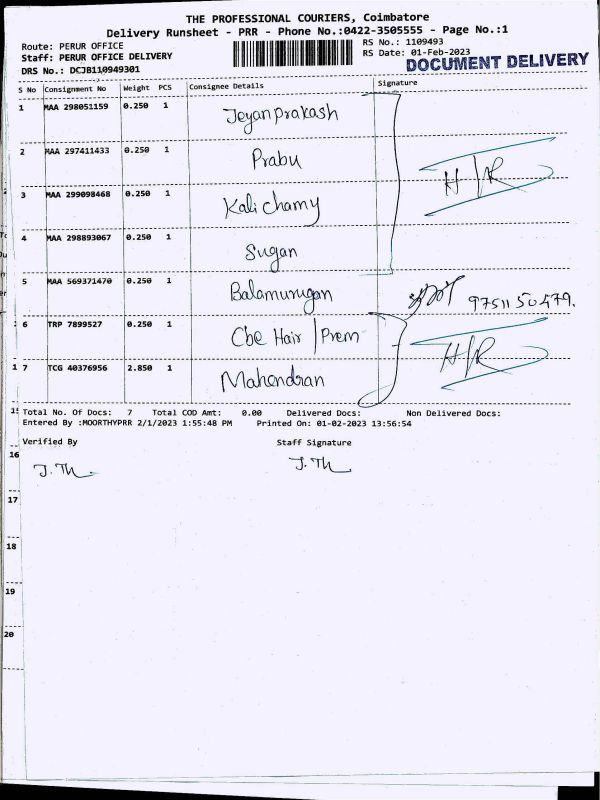 THE PROFESSIONAL COURIERS, Coimbatore
Delivery Runsheet - PRR - Phone No.:0422-3505555 - Page No.:1
Route: PERUR OFFICE
RS No.: 1109493
Staff: PERUR OFFICE DELIVERY
RS Date: 01-Feb-2023
DRS No.: DCJB110949301
DOCUMENT DELIVERY
S No Consignment No Weight PCS Consignee Details Signature
1 MAA 298051159 0.250 1 Jeyanprakash
2 MAA 297411433 0.250 1 Prabu
H/R
3 MAA 299098468 0.250 1 Kalichamy
4 MAA 298893067 0.250 1 Sugan
5 MAA 569371470 0.250 1 Balamurugan 9751150479.
6 TRP 7899527 0.250 1 Cbe Hair / Prem
H/R
7 TCG 40376956 2.850 1 Mahendran
Total No. Of Docs: 7 Total COD Amt: 0.00 Delivered Docs: Non Delivered Docs:
Entered By :MOORTHYPRR 2/1/2023 1:55:48 PM Printed On: 01-02-2023 13:56:54
Verified By Staff Signature
16
17
18
19
20